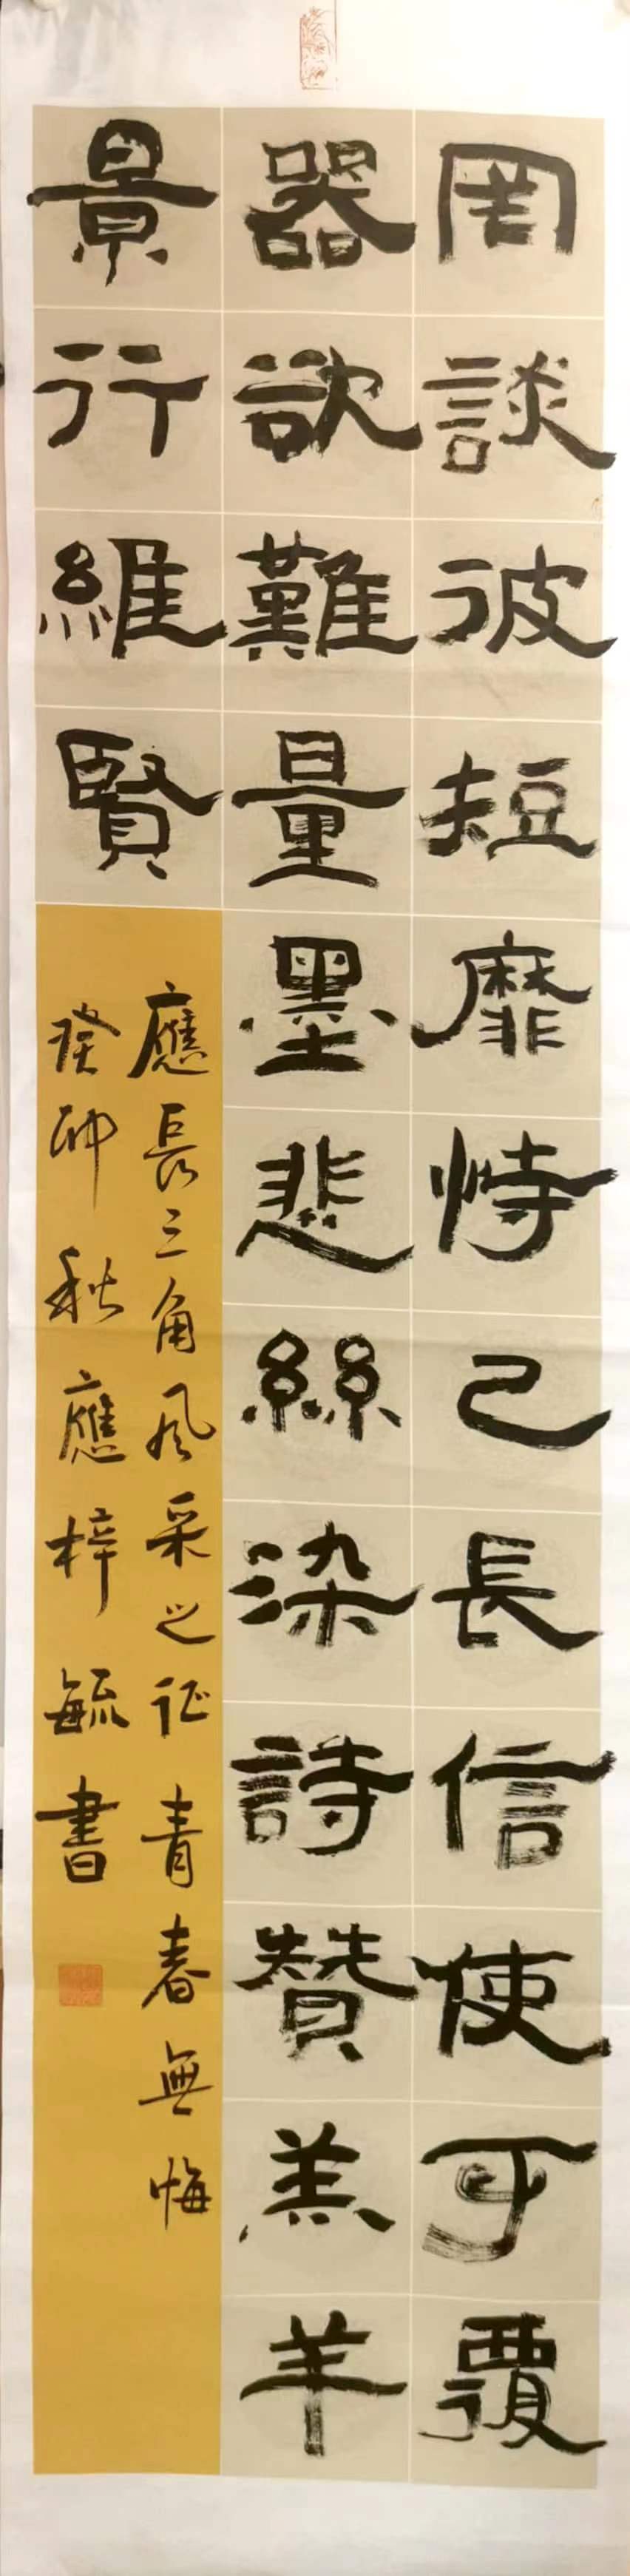 罔談彼短靡恃己長信使可覆
器欲難量墨悲絲染詩贊羔羊
景行維賢
應長三角風采之证青春無悔
癸卯秋應梓毓書